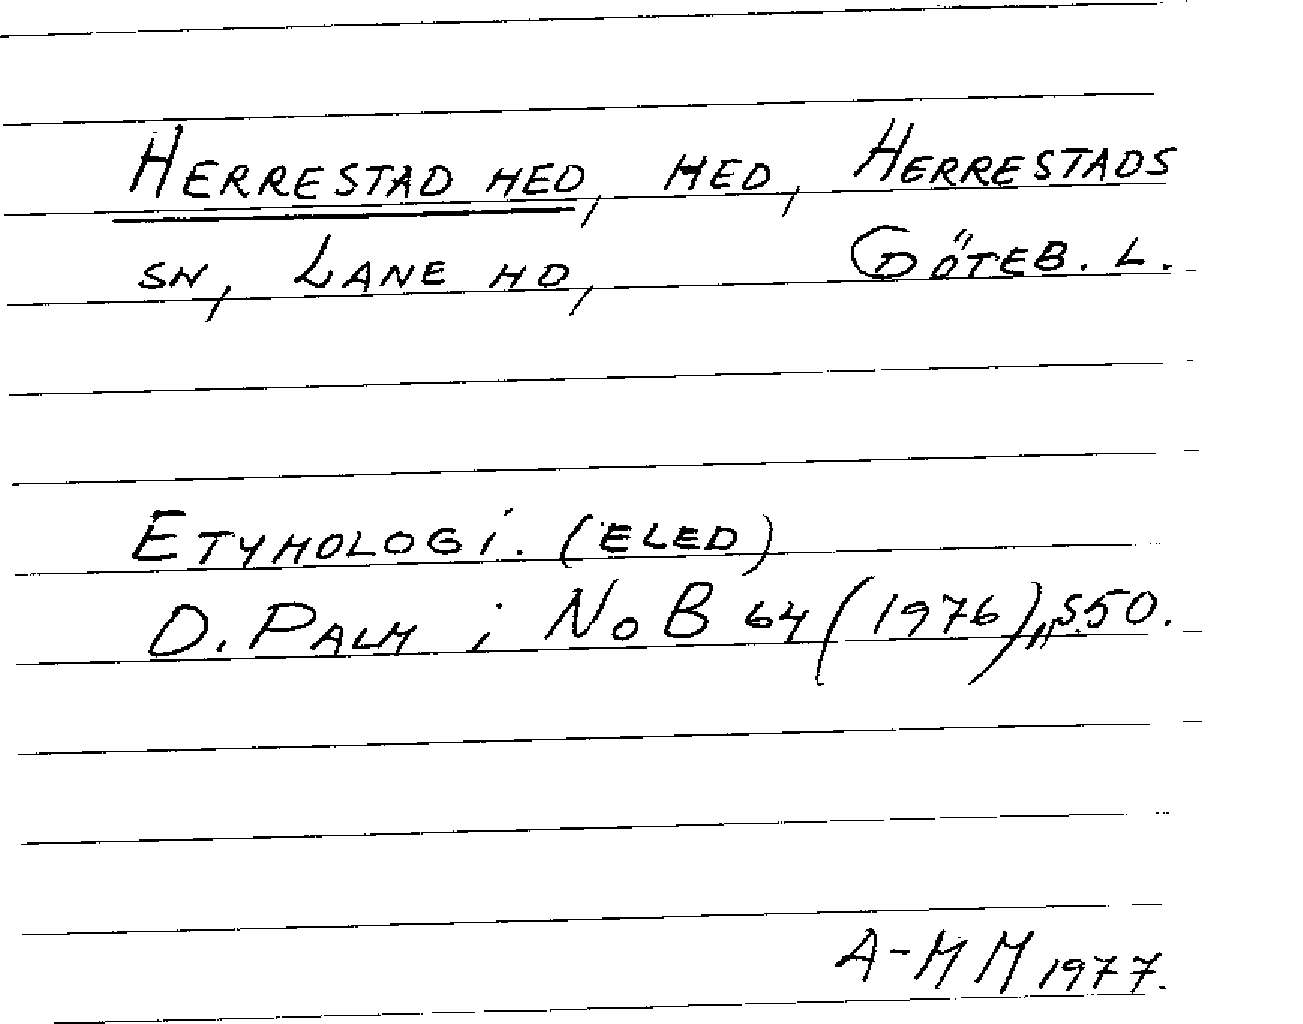 HERRESTAD HED, HED, HERRESTADS
SN, LANE HD, GÖTEB. L.
ETYMOLOGI. (ELED)
D. PALM i NoB 64 (1976), S. 50.
A-MM 1977.